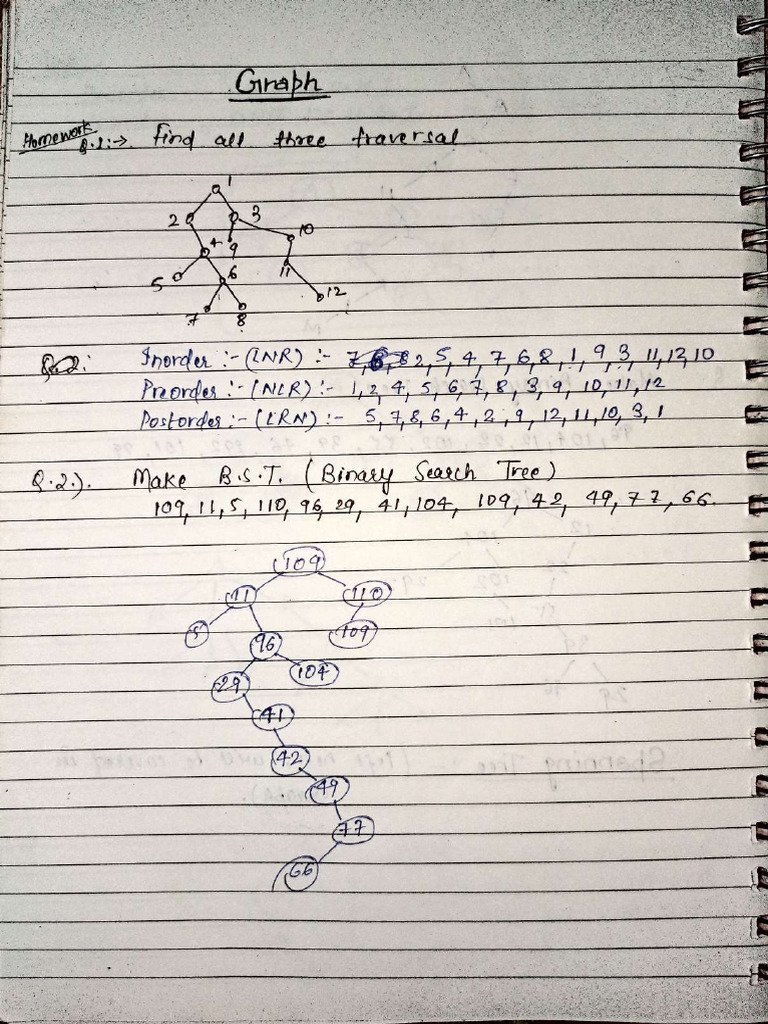 Graph
Homework
Q.1:→ Find all three traversal
1
2 3
4 9 10
5 6 11
7 8 12
Inorder :- (LNR) :- 2, 5, 4, 7, 6, 8, 1, 9, 3, 11, 12, 10
Preorder :- (NLR) :- 1, 2, 4, 5, 6, 7, 8, 3, 9, 10, 11, 12
Postorder :- (LRN) :- 5, 7, 8, 6, 4, 2, 9, 12, 11, 10, 3, 1
Q.2.). Make B.S.T. (Binary Search Tree)
109, 11, 5, 110, 96, 29, 41, 104, 109, 42, 49, 77, 66.
109
11 110
5 96 109
29 104
41
42
49
77
66